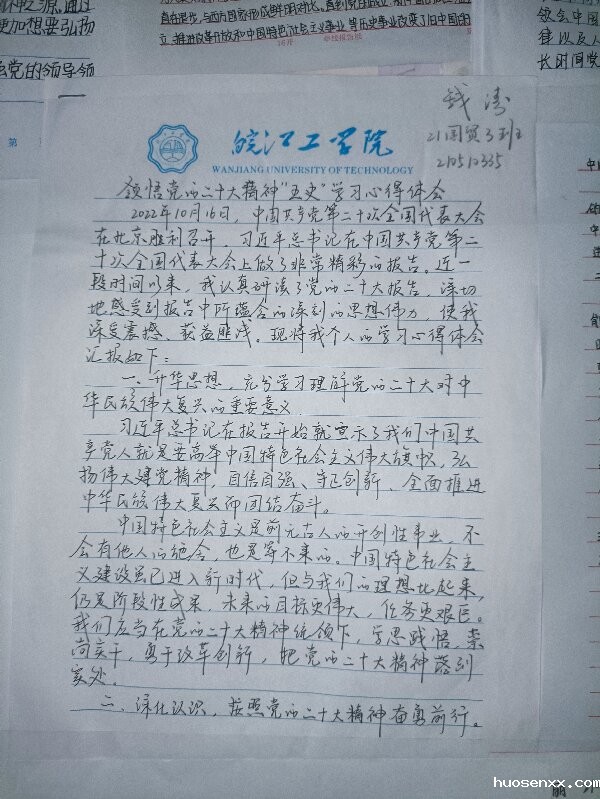 钱涛
21国贸3班
210510335
皖江工学院
WANJIANG UNIVERSITY OF TECHNOLOGY
领悟党的二十大精神“五史”学习心得体会
2022年10月16日，中国共产党第二十次全国代表大会
在北京胜利召开，习近平总书记在中国共产党第二
十次全国代表大会上做了非常精彩的报告。近一
段时间以来，我认真研读了党的二十大报告，深切
地感受到报告中所蕴含的深刻的思想伟力，使我
深受震撼、获益匪浅。现将我个人的学习心得体会
汇报如下：
一、升华思想，充分学习理解党的二十大对中
华民族伟大复兴的重要意义
习近平总书记在报告开始就宣示了我们中国共
产党人就是要高举中国特色社会主义伟大旗帜，弘
扬伟大建党精神，自信自强、守正创新，全面推进
中华民族伟大复兴而团结奋斗。
中国特色社会主义是前无古人的开创性事业，不
会有他人的施舍，也是等不来的。中国特色社会主
义建设虽已进入新时代，但与我们的理想比起来，
仍是阶段性成果，未来的目标更伟大，任务更艰巨。
我们应当在党的二十大精神统领下，学思践悟，崇
尚实干，勇于改革创新，把党的二十大精神落到
实处。
二、深化认识，按照党的二十大精神奋勇前行。
更加想要弘扬
党的领导领
长时间党
huosenxx.com